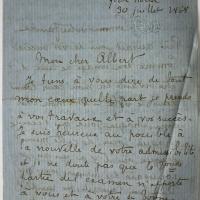 30 juillet
Mon cher Albert
Je tiens à vous dire de tout
mon cœur quelle part je prends
à vos travaux et à vos succès.
Je suis heureux au possible à
la nouvelle de votre admissibilité
et je ne doute pas que la
partie de l'examen n'apporte
à vous et à votre